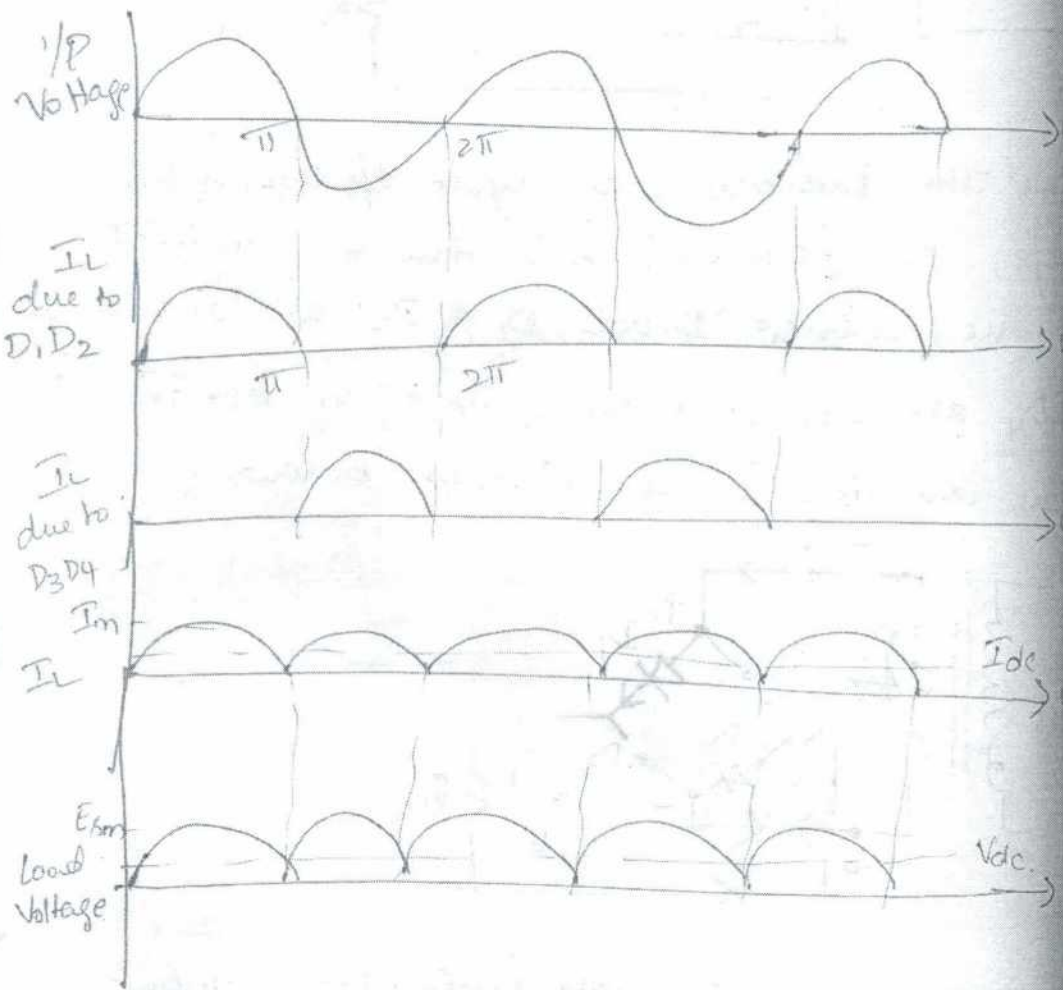 I/P
Voltage
π
2π
IL
due to
D1D2
π
2π
IL
due to
D3D4
Im
IL
Idc
Esm
Load
Voltage
Vdc.